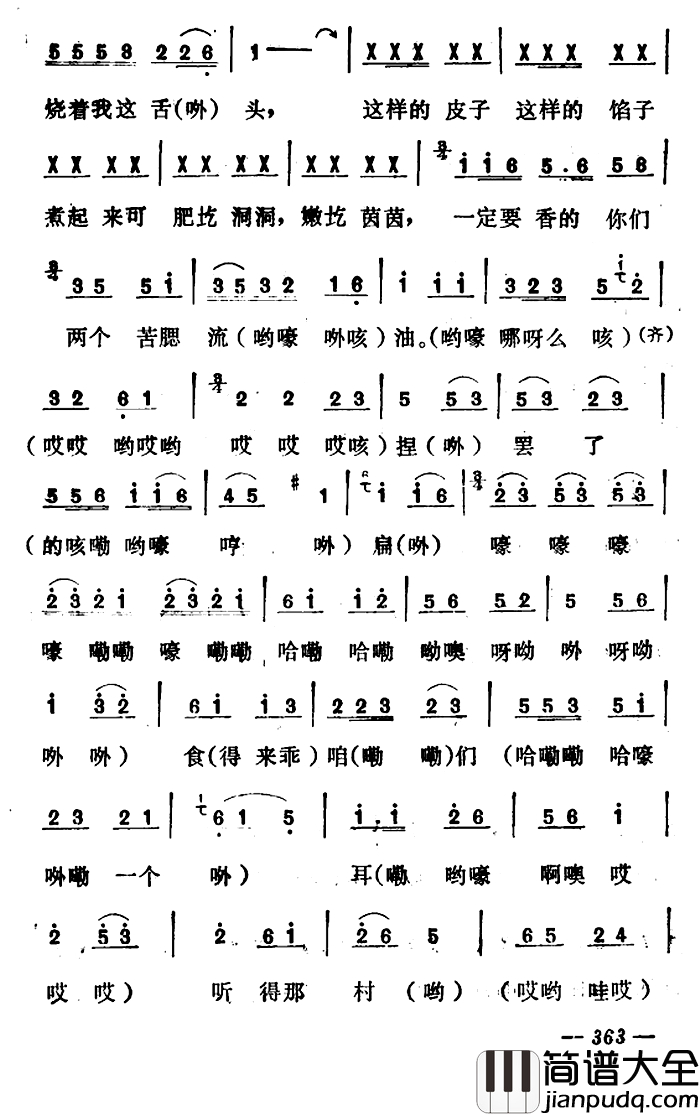 5553 226 | 1 — | X X X X X X X X X X X X |
烧着我这 舌(哟) 头， 这样的 皮子 这样的 馅子
X X X X | X X X X | X X X X | 3/4 i i 6 5.6 5 6 |
煮起 来可 肥圪 洞洞，嫩圪 茵茵， 一定要 香的 你们
3 5 5 i | 3532 1 6 | i i i | 323 5 2 |
两个 苦腮 流(哟嚎 咴咳)油。(哟嚎 哪呀么 咳)(齐)
3 2 6 1 | 2 2 2 3 | 5 5 3 | 5 3 2 3 |
(哎哎 哟哎哟 哎 哎 哎咳)捏( ) 罢 了
556 i i 6 | 4 5 # 1 | i i 6 | 2 3 5 3 5 3 |
(的咳嘞 哟嚎 哼 ) 扁( ) 嚎 嚎 嚎
2 3 2 i 2 3 2 i | 6 i i 2 | 5 6 5 2 | 5 5 6 |
嚎 嘞嘞 嚎 嘞嘞 哈嘞 哈嘞 呦噢 呀呦 呀呦
i 3 2 | 6 i i 3 | 2 2 3 2 3 | 5 5 3 5 i |
) 食(得 来乖)咱(嘞 嘞)们 (哈嘞嘞 哈嚎
2 3 2 1 | 6 1 5 | i. i 2 6 | 5 6 i |
嘞 一个 ) 耳(嘞 哟嚎 啊噢 哎
2 5 3 | 2 6 i | 2 6 5 | 6 5 2 4 |
哎 哎) 听 得那 村 (哟) (哎哟 哇哎)
— 363 —
简谱大全
jianpudq.com